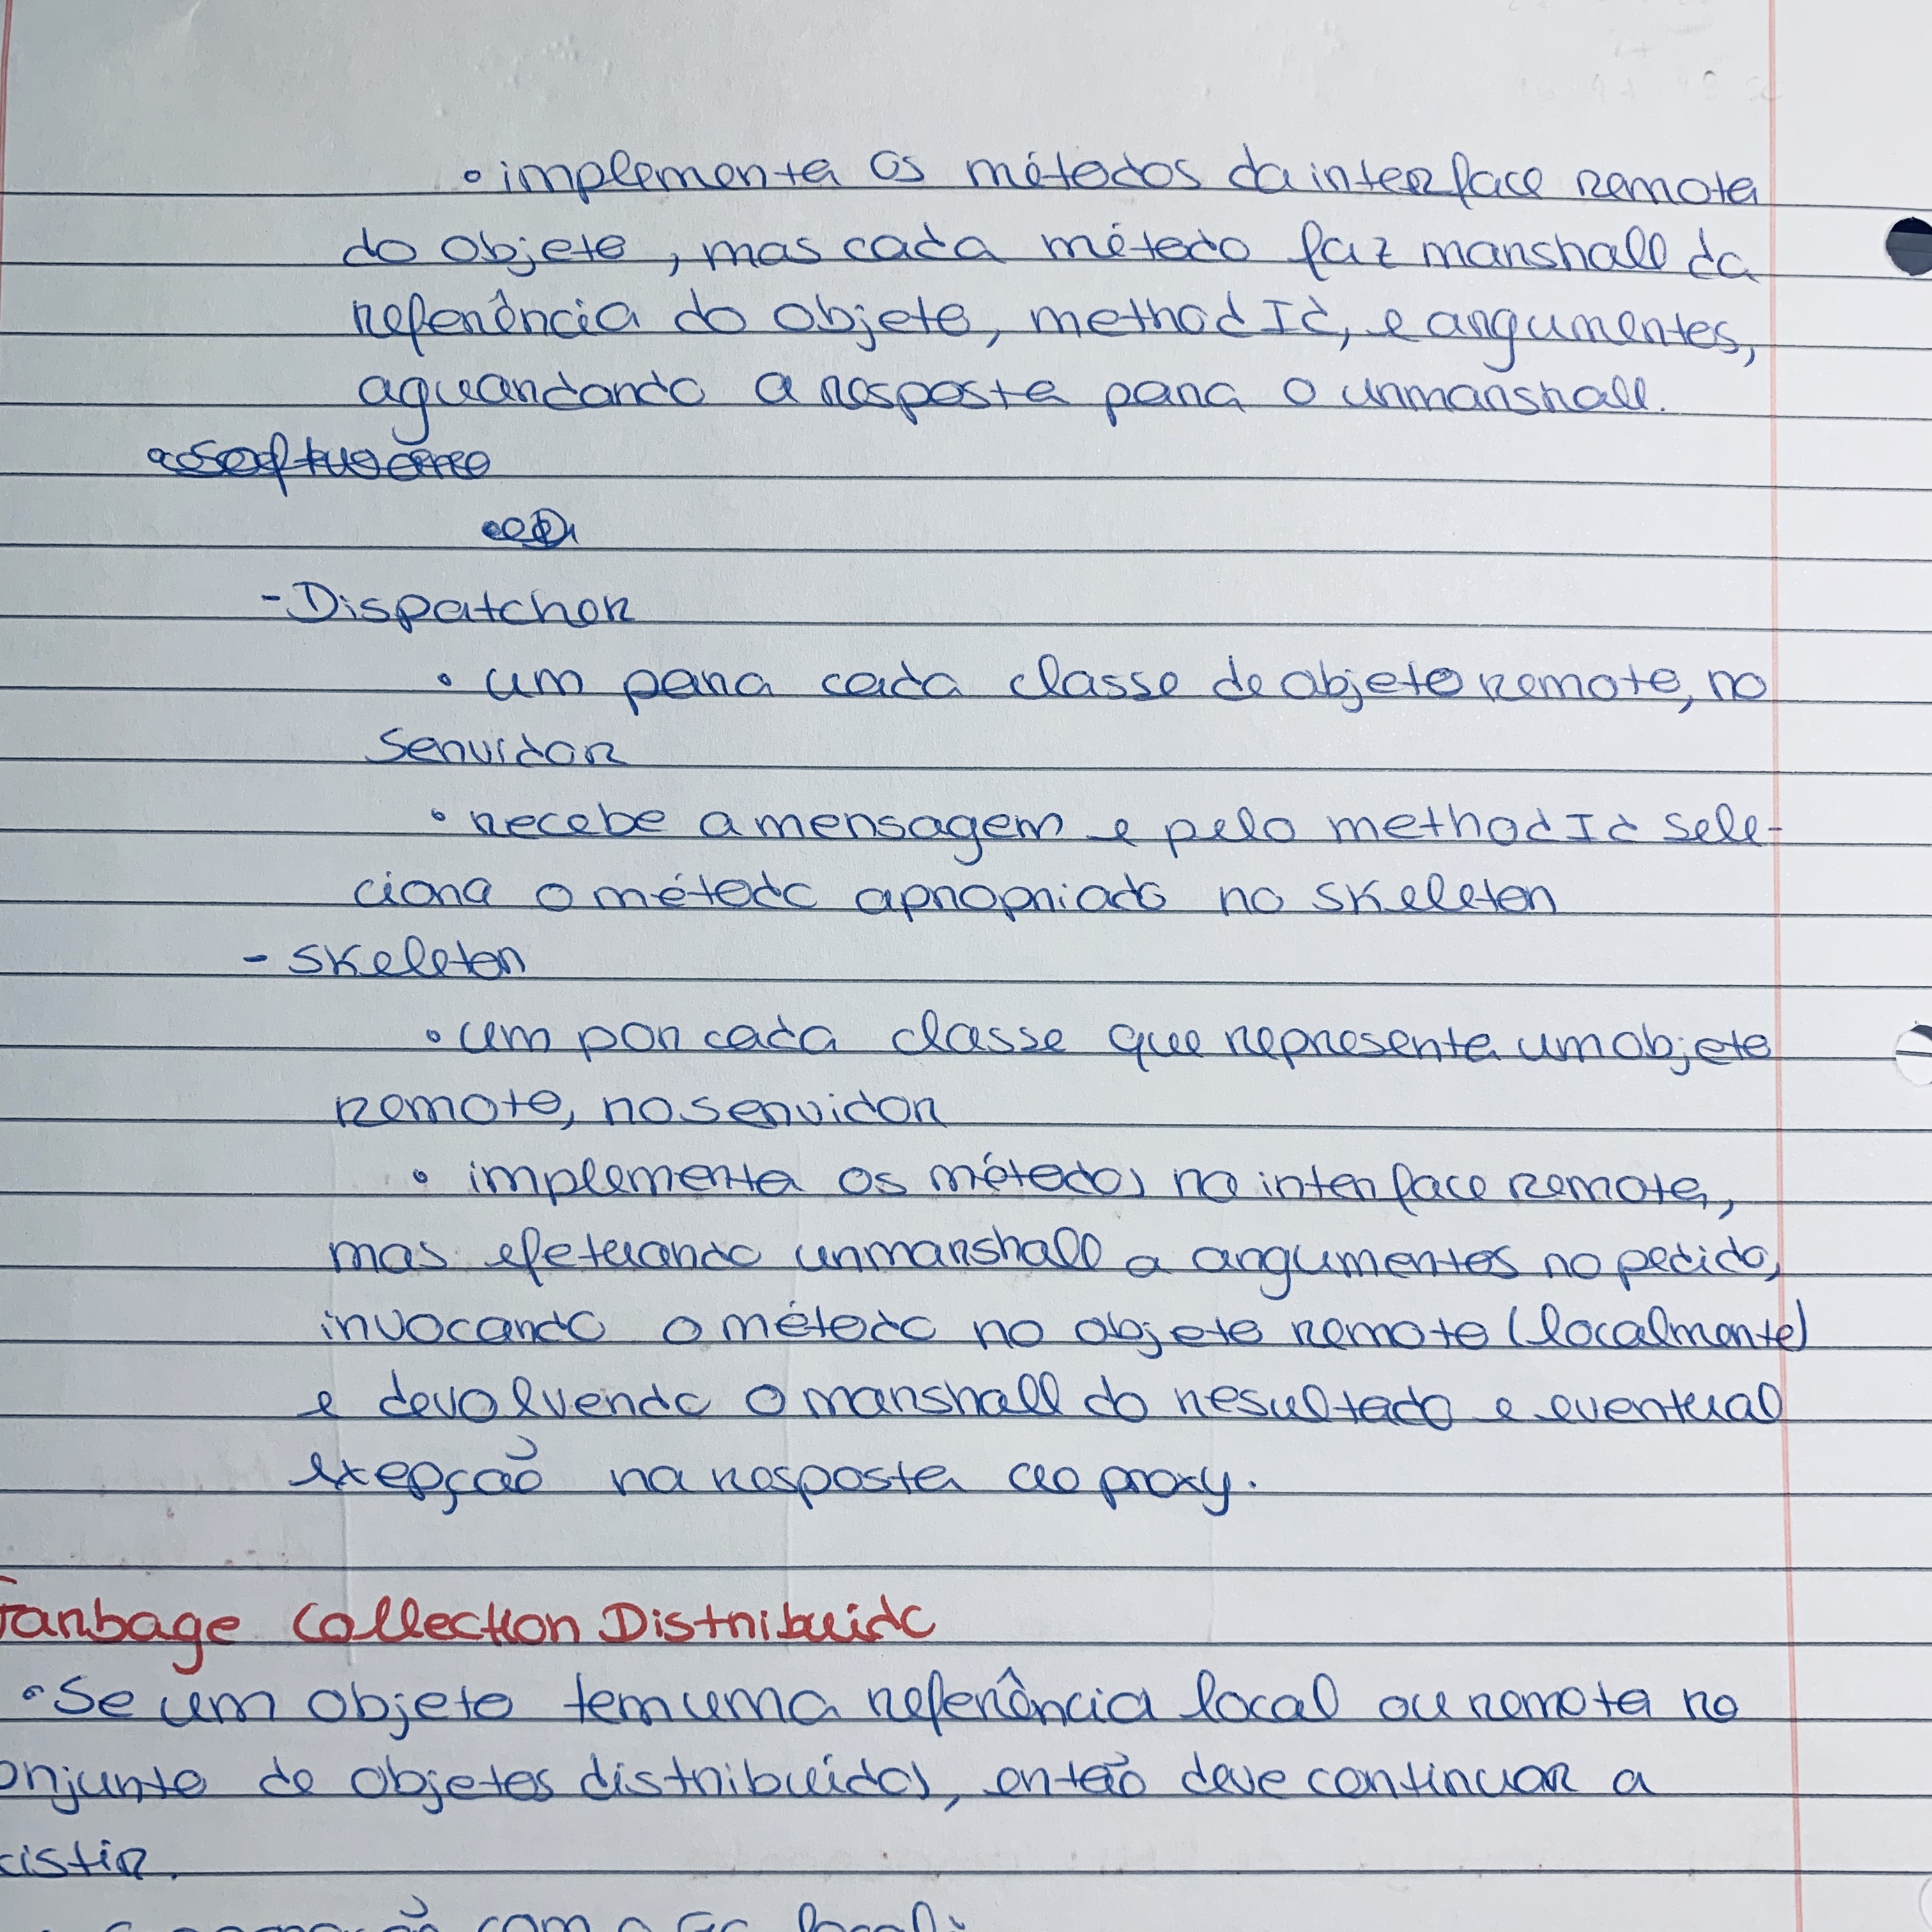 • implementa os métodos da interface remota
do objeto, mas cada método faz marshall da
referência do objeto, methodId, e argumentos,
aguardando a resposta para o unmarshall.
• Software
- Dispatcher
• um para cada classe de objeto remoto, no
servidor
• recebe a mensagem e pelo methodId sele-
ciona o método apropriado no skeleton
- Skeleton
• um por cada classe que representa um objeto
remoto, no servidor
• implementa os métodos na interface remota,
mas efetuando unmarshall a argumentos no pedido,
invocando o método no objeto remoto (localmente)
e devolvendo o marshall do resultado e eventual
exepção na resposta ao proxy.
Garbage Collection Distribuído
• Se um objeto tem uma referência local ou remota no
onjunto de objetos distribuídos, então deve continuar a
xistir.
com o GC local: